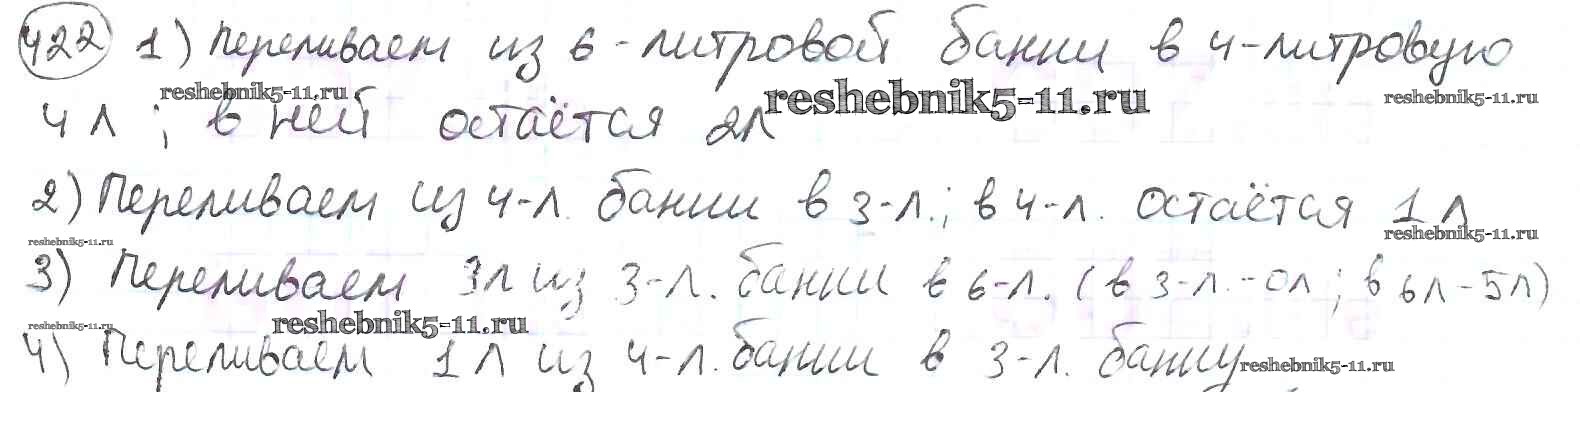 422 1) Переливаем из 6-литровой банки в 4-литровую
reshebnik5-11.ru reshebnik5-11.ru reshebnik5-11.ru
4 л ; в ней остаётся 2л
2) Переливаем из 4-л. банки в 3-л.; в 4-л. остаётся 1 л
reshebnik5-11.ru reshebnik5-11.ru
3) Переливаем 3л из 3-л. банки в 6-л. (в 3-л.-0л; в 6л-5л)
reshebnik5-11.ru reshebnik5-11.ru
4) Переливаем 1 л из 4-л. банки в 3-л. банку
reshebnik5-11.ru